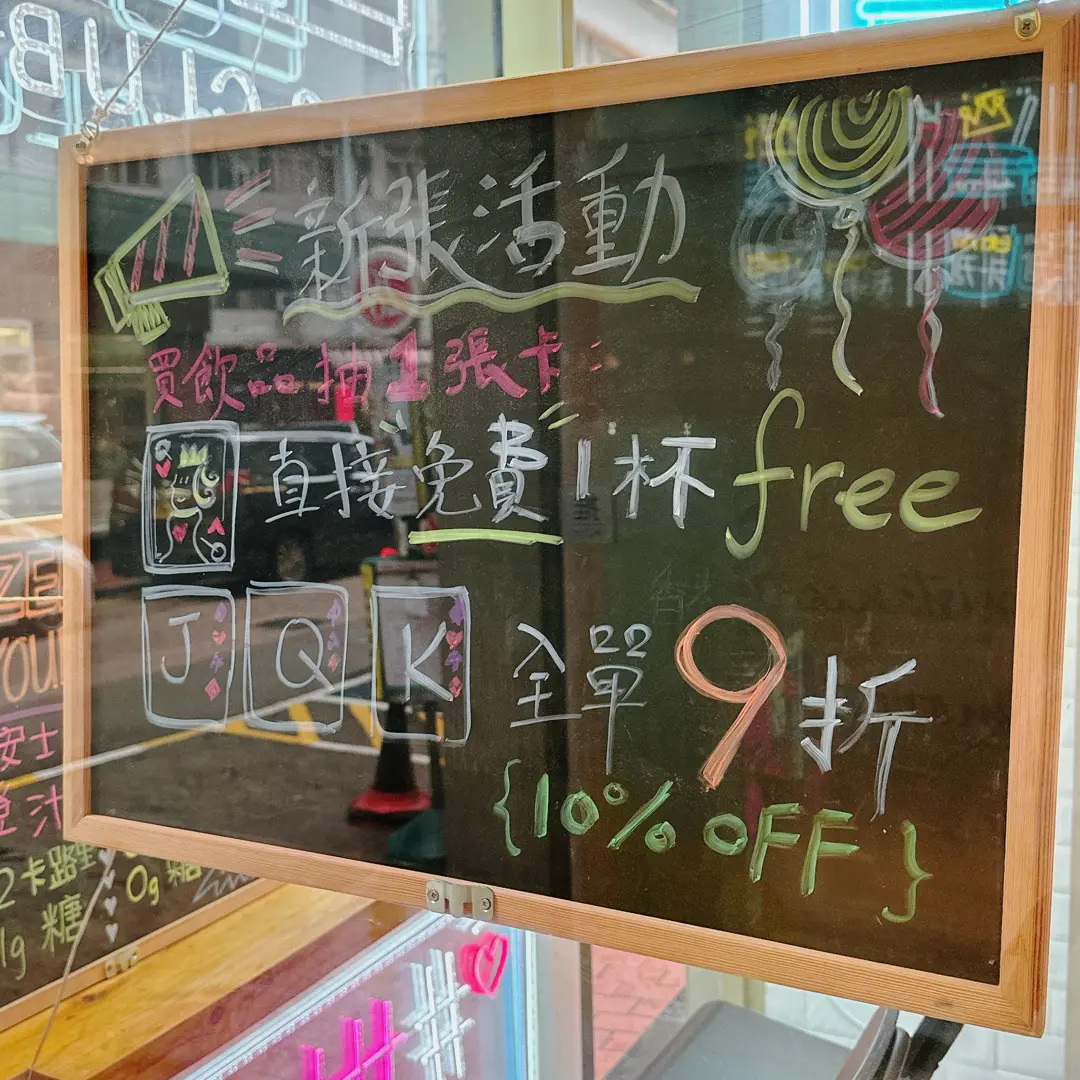 新張活動
買飲品抽1張卡:
Q
直接"免費"1杯free
J Q K
全單9折
{10% OFF}
安士
卡路里
0g 糖
糖